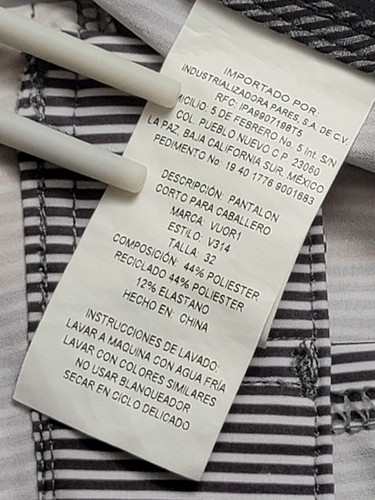 IMPORTADO POR:
INDUSTRIALIZADORA PARES, S.A. DE C.V.
RFC: IPA990719BT5
5 DE FEBRERO No. 5 Int. S/N
COL. PUEBLO NUEVO C.P. 23060
LA PAZ, BAJA CALIFORNIA SUR. MÉXICO
PEDIMENTO No: 19 40 1776 9001683
DESCRIPCIÓN: PANTALON
CORTO PARA CABALLERO
MARCA: VUOR1
ESTILO: V314
TALLA: 32
COMPOSICIÓN: 44% POLIESTER
RECICLADO 44% POLIESTER
12% ELASTANO
HECHO EN: CHINA
INSTRUCCIONES DE LAVADO:
LAVAR A MAQUINA CON AGUA FRÍA
LAVAR CON COLORES SIMILARES
NO USAR BLANQUEADOR
SECAR EN CICLO DELICADO